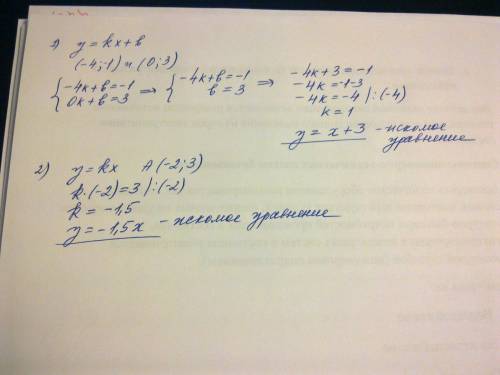 1) y = kx + b
(-4;-1) и (0;3)
{-4k+b=-1 ⇒ {-4k+b=-1 ⇒ -4k+3=-1
{0k+b=3 {b=3 -4k=-1-3
-4k=-4 |:(-4)
k=1
y = x+3 - искомое
уравнение
2) y = kx A(-2;3)
k·(-2)=3 |:(-2)
k = -1,5
y = -1,5x - искомое уравнение